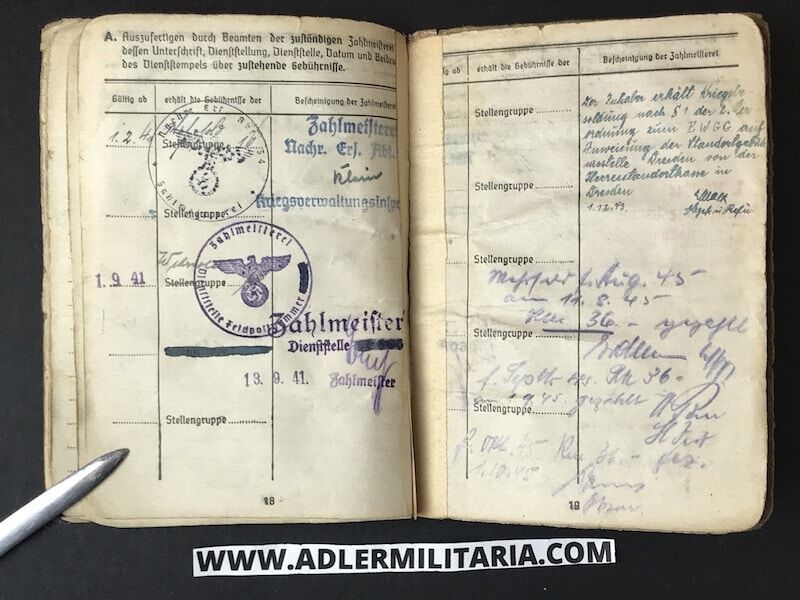 A. Auszufertigen durch Beamten der zuständigen Zahlmeisterei
dessen Unterschrift, Dienststellung, Dienststelle, Datum und Beidru
des Dienststempels über zustehende Gebührnisse.
Gültig ab
erhält die Gebührnisse der
Bescheinigung der Zahlmeisterei
1.2.41
Stellengruppe
Zahlmeisterei
Nachr. Ers. Abt.
Klein
Kriegsverwaltungsinspe
Zahlmeisterei
Stellengruppe
Stellengruppe
1.9.41
Zahlmeisterei
Dienststelle Feldpostnummer
Zahlmeister
Dienststelle
13.9.41. Zahlmeister
Stellengruppe
18
tig ab
erhält die Gebührnisse der
Bescheinigung der Zahlmeisterei
Stellengruppe
Stellengruppe
Stellengruppe
Stellengruppe
Stellengruppe
Der Inhaber erhält Kriegsbe
soldung nach § 1 der 2. Ver
ordnung zum EWGG auf
Anweisung der Standortgebühr
nisstelle Dresden von der
Heeresstandortkasse in
Dresden
1.12.43.
Wehrsold f. Aug. 45
am 11.8.45
36.- gezahlt
f. Septb. 36.-
gezahlt
f. Okt. 45 Rm 36.- gez.
1.10.45
19
WWW.ADLERMILITARIA.COM